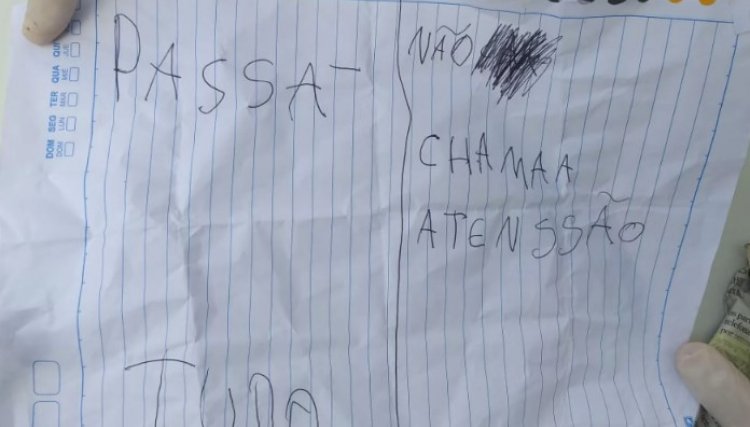 PASSA-
TUDO
NÃO
CHAMA A
ATENSSÃO
DOM SEG TER QUA QUI
DOM LUN MAR MIÉ JUE